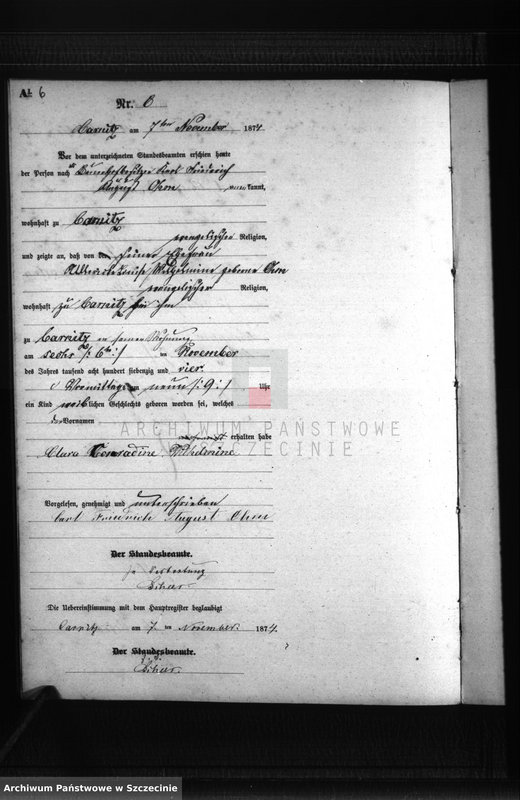 № 6
Nr. 6
Carnitz am 7ten November 1874.
Vor dem unterzeichneten Standesbeamten erschien heute
der Person nach Karl Friedrich
August kannt,
wohnhaft zu Carnitz
evangelischer Religion,
und zeigte an, daß von seiner Ehefrau
Wilhelmine geborne
evangelischer Religion,
wohnhaft zu Carnitz bei ihm
zu Carnitz in seiner Wohnung
am sechs /: 6ten :/ November
des Jahres tausend acht hundert siebenzig und vier
Vormittags um neun /: 9 :/ Uhr
ein Kind weiblichen Geschlechts geboren worden sei, welches
Vornamen
erhalten habe
Clara Conradine Wilhelmine
Vorgelesen, genehmigt und unterschrieben
Carl Friedrich August
Der Standesbeamte.
Die Uebereinstimmung mit dem Hauptregister beglaubigt
Carnitz am 7. ten November 1874.
Der Standesbeamte.
ARCHIWUM PAŃSTWOWE
W SZCZECINIE
Archiwum Państwowe w Szczecinie